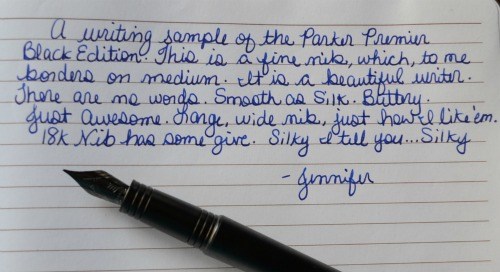 A writing sample of the Parker Premier
Black Edition. This is a fine nib, which, to me
borders on medium. It is a beautiful writer.
There are no words. Smooth as Silk. Buttery.
Just Awesome. Large, wide nib, just how I like 'em.
18k Nib has some give. Silky I tell you...Silky
- Jennifer